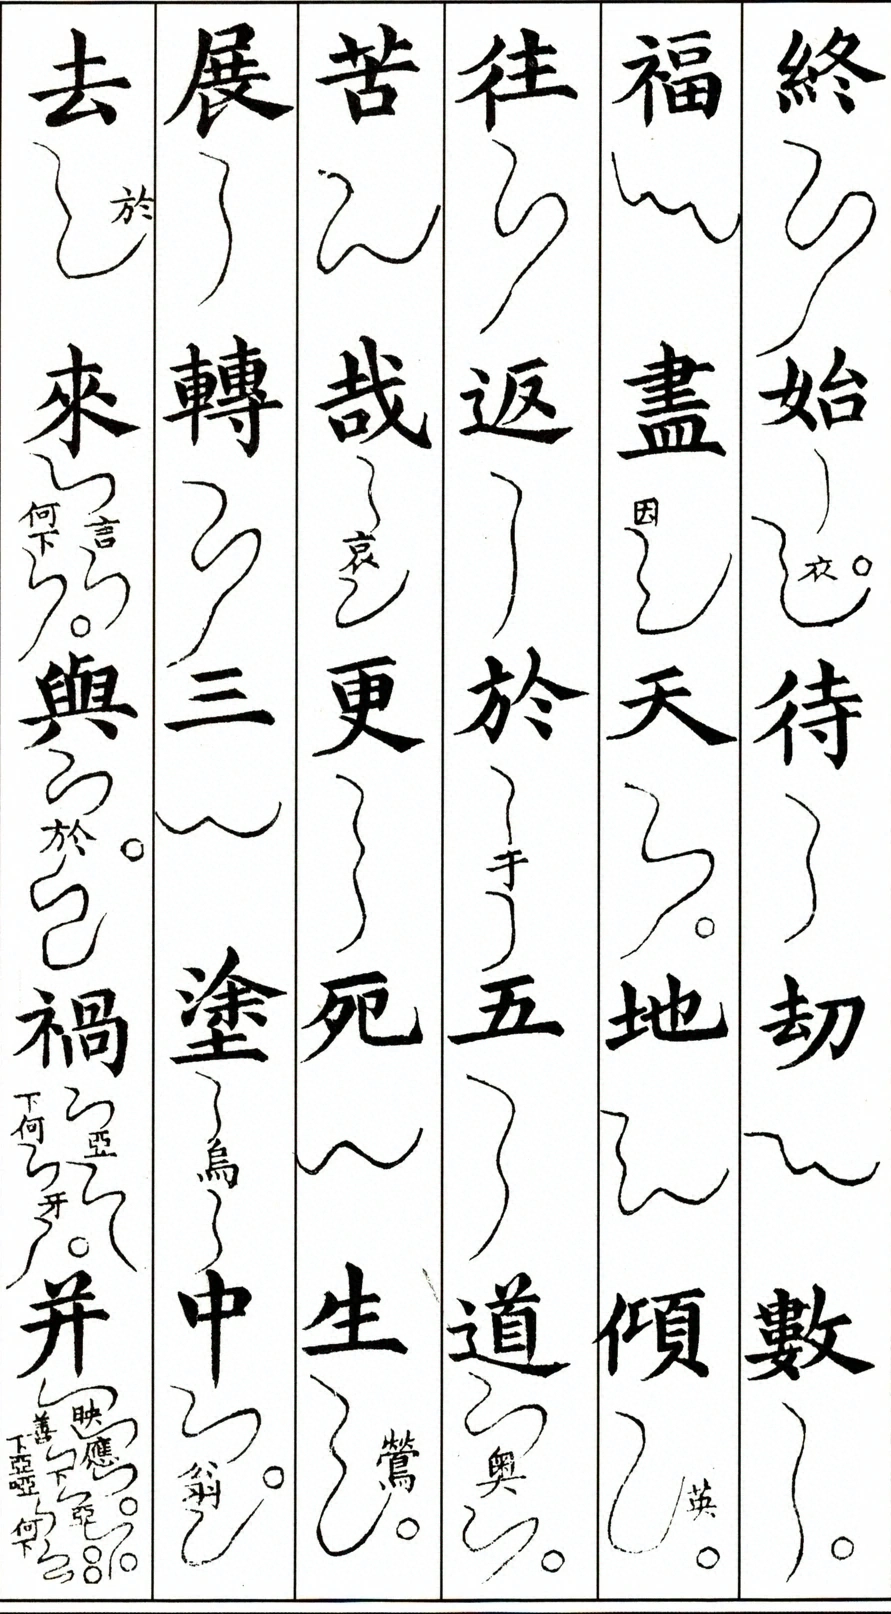 終始衣待劫數
福盡因天地傾英
往返於于五道奧
苦哉哀更死生鶯
展轉三塗烏中翁
去於來言何下與於禍亞下何牙并映應善下亞下亞啞何下